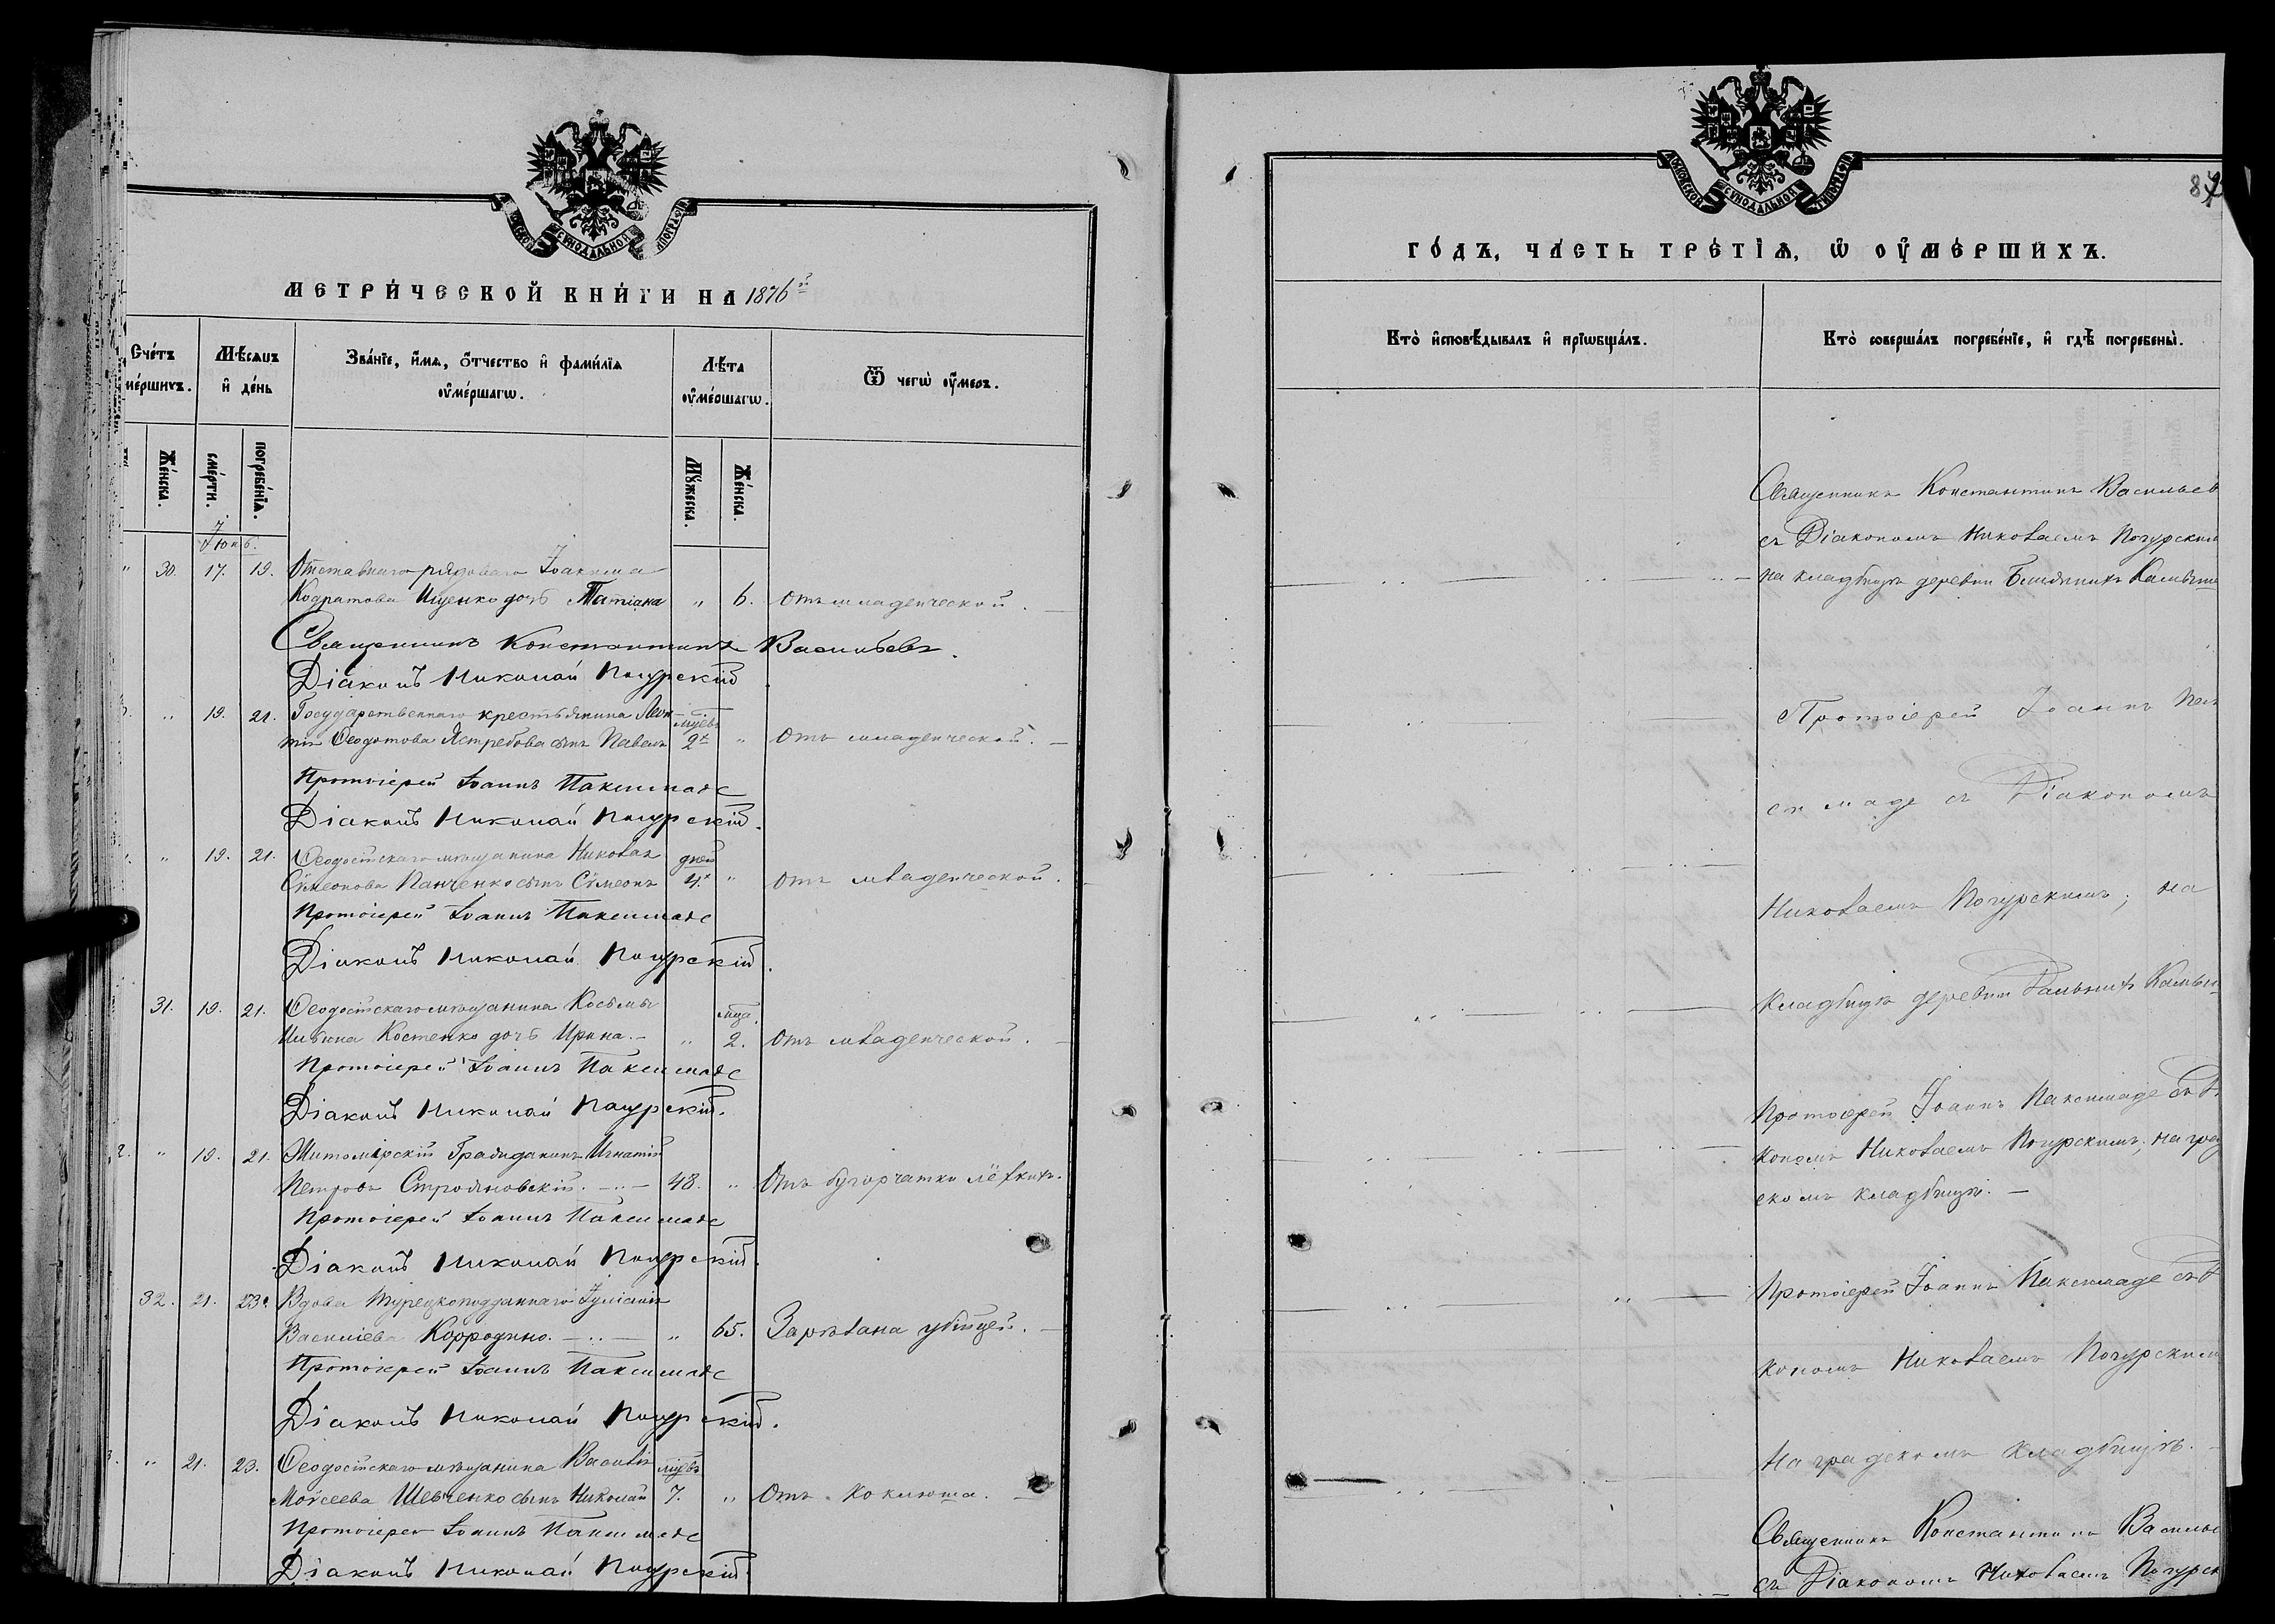 МЕТРИ́ЧЕСКОЙ КНИ́ГИ НА 1876й
Сче́тъ
ме́ршихъ.
Мѣ́сяцъ
и҆ де́нь
Зва́нїе, и҆́мя, ѻ҆́тчество и҆ фами́лїя
ᲂу҆ме́ршагѡ.
Лѣ́та
ᲂу҆ме́ршагѡ.
Ѿ чегѡ̀ ᲂу҆́меръ.
Же́нска.
сме́рти.
погребе́нїѧ.
Мꙋ́жеска.
Же́нска.
Іюнь.
" 30. 17. 19. Отставнаго рядоваго Іоакима
Кодратова Ищенко дочь Татіана " 6. Отъ младенческой.
Священникъ Константинъ Васильевъ.
Діаконъ Николай Погурскій
" 19. 21. Государственнаго крестьянина Леон- мцѣвъ
тія Ѳеодотова Ястребова сынъ Павелъ 2х " Отъ младенческой.
Протоіерей Іоаннъ Паксимаде
Діаконъ Николай Погурскій.
" 19. 21. Ѳеодосійскаго мѣщанина Николая дней
Сѵмеонова Панченко сынъ Сѵмеонъ 4.х " Отъ младенческой.
Протоіерей Іоаннъ Паксимаде
Діаконъ Николай Погурскій.
31. 19. 21. Ѳеодосійскаго мѣщанина Косьмы мца.
Костенко дочь Ирина. " 2. Отъ младенческой.
Протоіерей Іоаннъ Паксимаде
Діаконъ Николай Погурскій.
" 19. 21. Житомірскій Гражданинъ Игнатій
Петровъ Строяновскій. 48. " Отъ бугорчатки лёгкихъ.
Протоіерей Іоаннъ Паксимаде
Діаконъ Николай Погурскій.
32. 21. 23. Вдова Турецкоподданнаго Іуліанія
Василіева Коррадино. " 65. Зарѣзана убійцей.
Протоіерей Іоаннъ Паксимаде
Діаконъ Николай Погурскій.
" 21. 23. Ѳеодосійскаго мѣщанина Василія мцѣвъ
Моѵсеева Шевченко сынъ Николай 7. " Отъ коклюша.
Протоіерей Іоаннъ Паксимаде
Діаконъ Николай Погурскій.
ГО́ДЪ, ЧА́СТЬ ТРЕ́ТІѦ, Ѡ҆ ОУ҆МЕ́РШИХЪ.
Кто̀ и҆сповѣ́дывалъ и҆ прїѡбща́лъ.
Кто̀ соверша́лъ погребе́нїе, и҆ гдѣ̀ погребены̀.
Священникъ Константинъ Васильев
съ Діакономъ Николаемъ Погурскимъ
на кладбищѣ деревни Ближнихъ Камыше
Протоіерей Іоаннъ Пак
симаде съ Діакономъ
Николаемъ Погурскимъ, на
кладбищѣ деревни Дальнихъ Камыш
Протоіерей Іоаннъ Паксимаде съ Д
кономъ Николаемъ Погурскимъ, на град
скомъ кладбищѣ.
Протоіерей Іоаннъ Паксимаде съ Д
кономъ Николаемъ Погурским
на градскомъ кладбищѣ.
Священникъ Константинъ Василье
съ Діакономъ Николаемъ Погурск